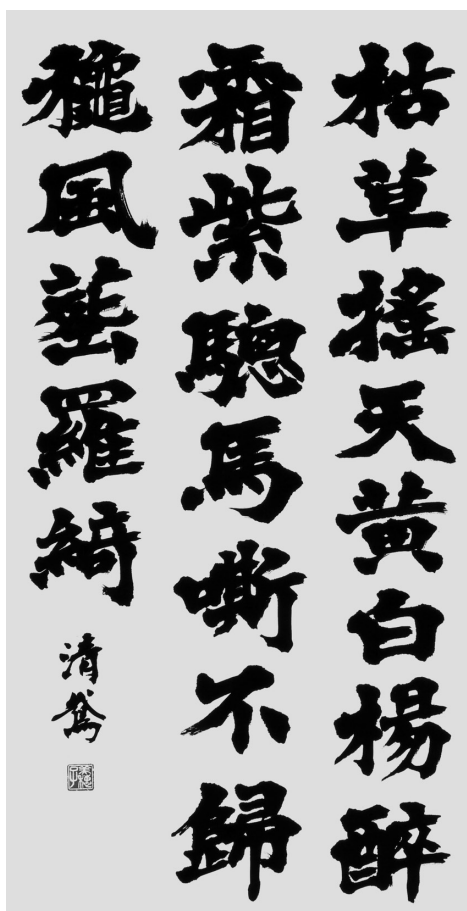 枯草搖天黄白楊醉
霜紫驄馬嘶不歸
龝風羅綺
清